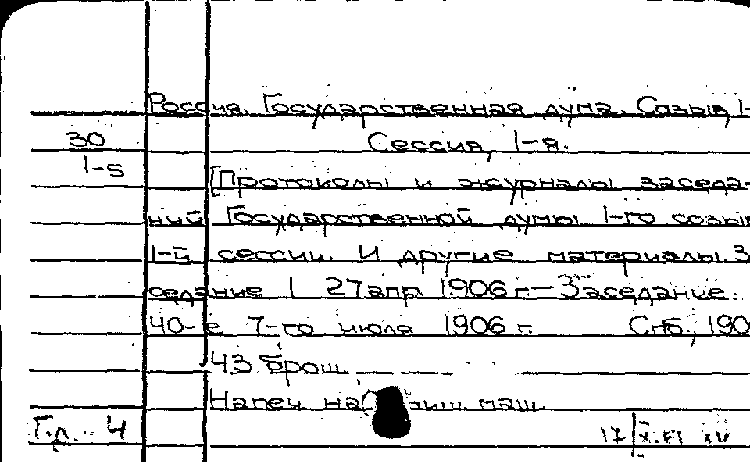 Россия. Государственная дума. Созыв, 1-
30
Сессия, 1-я.
1-5
[Протоколы и журналы заседа-
ний Государственной думы 1-го созыв
1-й сессии. И другие материалы. За
седание 1 27 апр 1906 г.— Заседание
40-е 7-го июля 1906 г. Спб., 190
43 брош.
Напеч на пиш. маш.
Г.п. 4